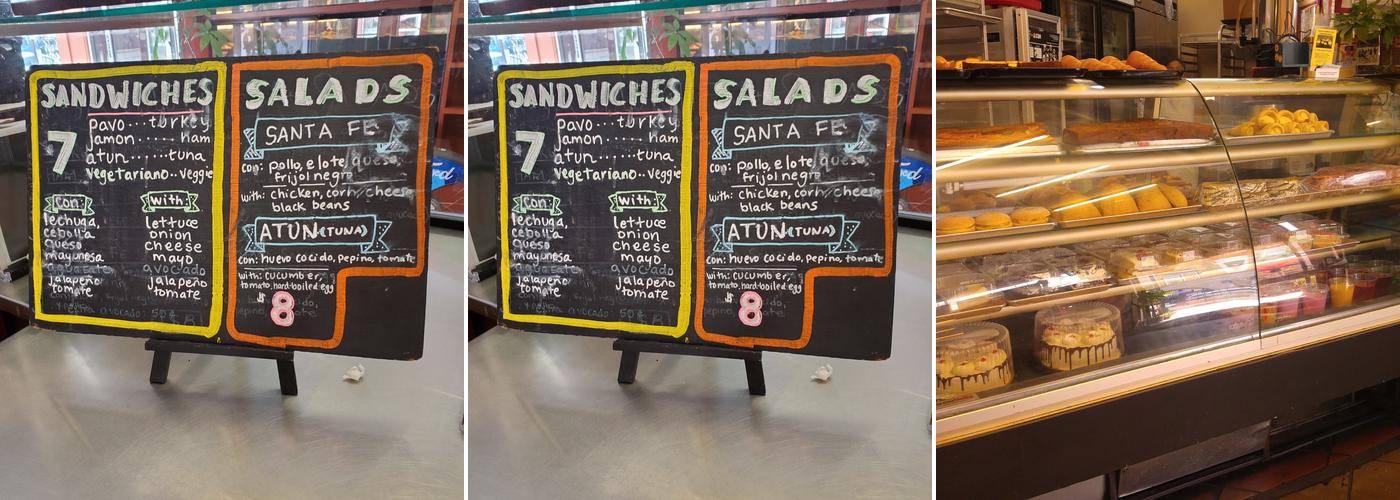 SANDWICHES
7
pavo....turkey
jamon...... ham
atun......tuna
vegetariano..veggie
con:
lechuga,
cebolla
queso
mayonosa
aguacate
jalapeño
tomate
with:
lettuce
onion
cheese
mayo
avocado
jalapeño
tomate
extra avocado: 50¢
SALADS
SANTA FE
con: pollo, elote, queso,
frijol negro
with: chicken, corn, cheese
black beans
ATUN (TUNA)
con: huevo cocido, pepino, tomate
with: cucumber,
tomato, hard-boiled egg
$8
SANDWICHES
7
pavo....turkey
jamon...... ham
atun......tuna
vegetariano..veggie
con:
lechuga,
cebolla
queso
mayonosa
aguacate
jalapeño
tomate
with:
lettuce
onion
cheese
mayo
avocado
jalapeño
tomate
extra avocado: 50¢
SALADS
SANTA FE
con: pollo, elote, queso,
frijol negro
with: chicken, corn, cheese
black beans
ATUN (TUNA)
con: huevo cocido, pepino, tomate
with: cucumber,
tomato, hard-boiled egg
$8